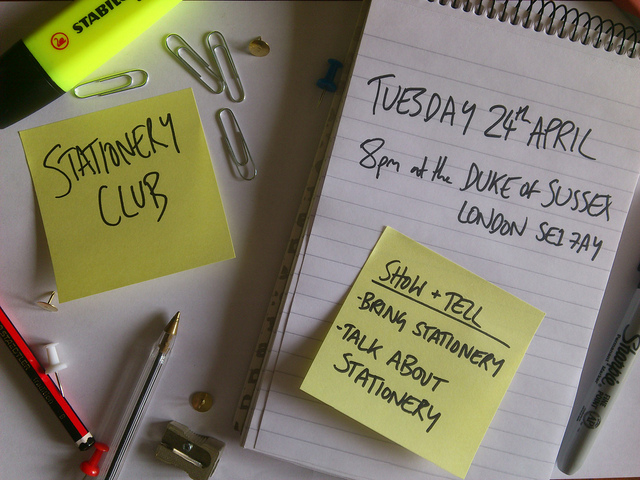 STABIL
STATIONERY
CLUB
TUESDAY 24th APRIL
8pm at the DUKE OF SUSSEX
LONDON SE1 7AY
SHOW + TELL
-BRING STATIONERY
-TALK ABOUT
STATIONERY
Sharpie